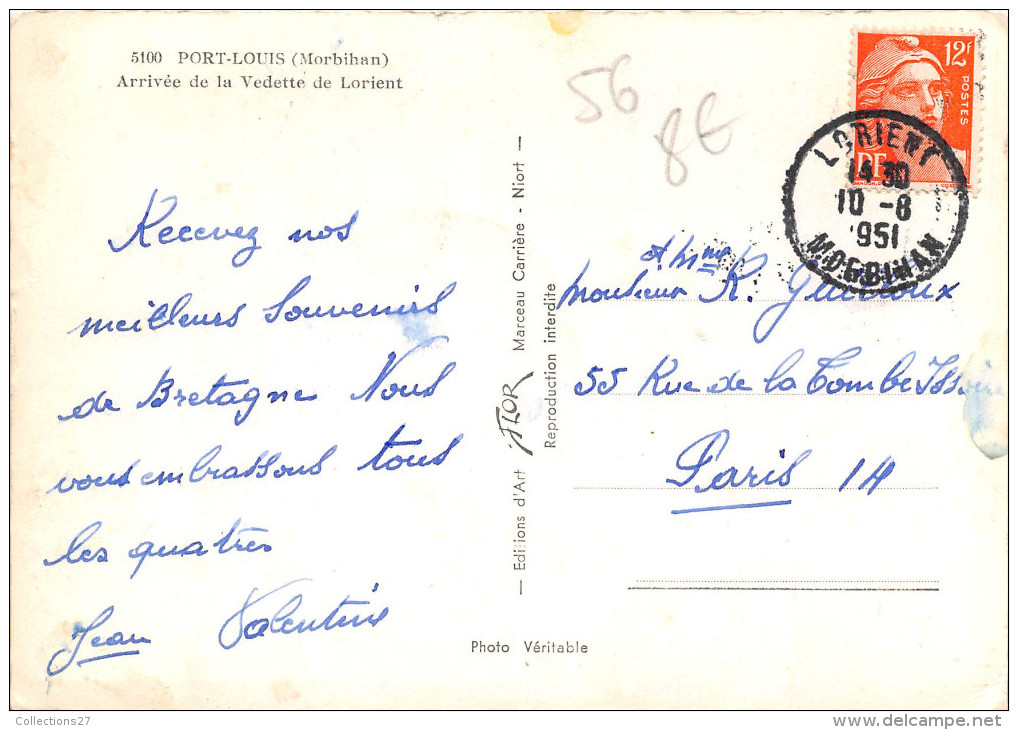 5100 PORT-LOUIS (Morbihan)
Arrivée de la Vedette de Lorient
Recevez nos
meilleurs Souvenirs
de Bretagne Nous
vous embrassons tous
les quatres
Jean Valentin
— Editions d'Art JFLOR Marceau Carrière - Niort —
Reproduction interdite
Photo Véritable
56
8€
12F
POSTES
RF
LORIENT
14 30
10 -8
1951
MORBIHAN
et Mme
Monsieur R.
55 Rue de la Tombe Issoire
Paris 14
Collections27
www.delcampe.net